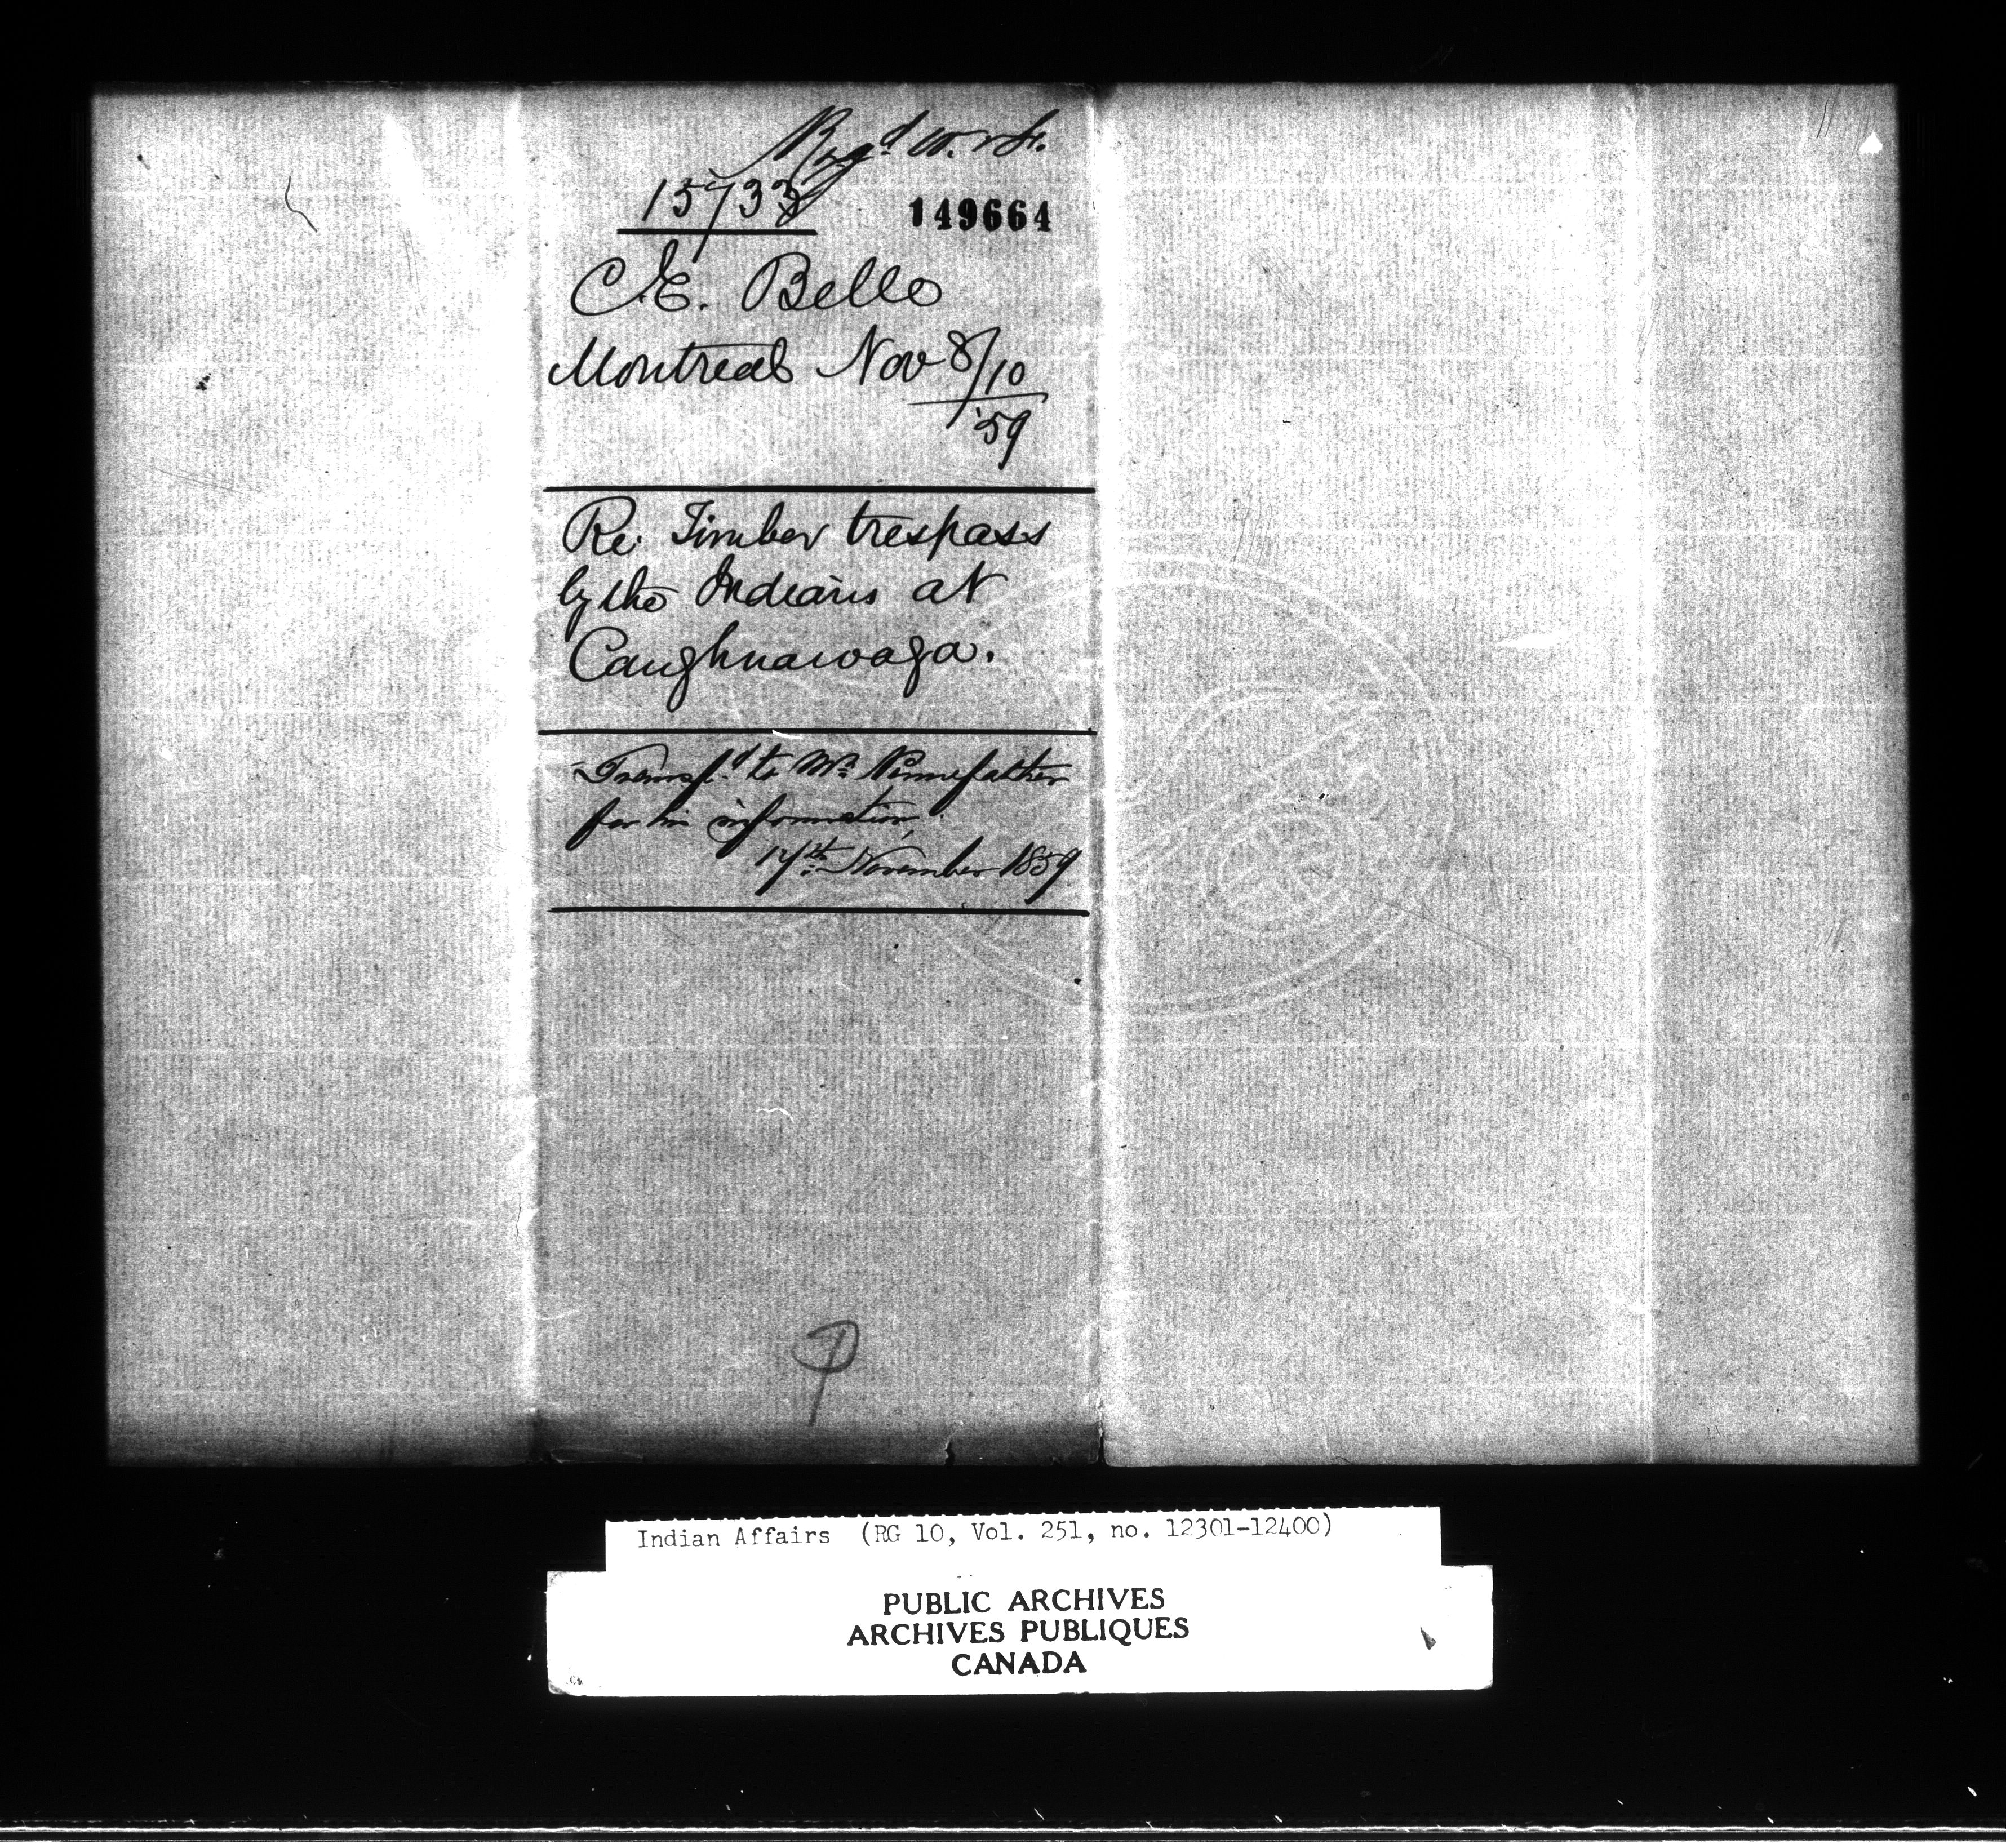 Regd W. & F.
15733
149664
C.E. Belle
Montreal Nov 8/10
'59
Re: Timber trespass
by the Indians at
Caughnawaga.
Transfd to Mr Pennefather
for his information
17th November 1859
Indian Affairs (RG 10, Vol. 251, no. 12301-12400)
PUBLIC ARCHIVES
ARCHIVES PUBLIQUES
CANADA